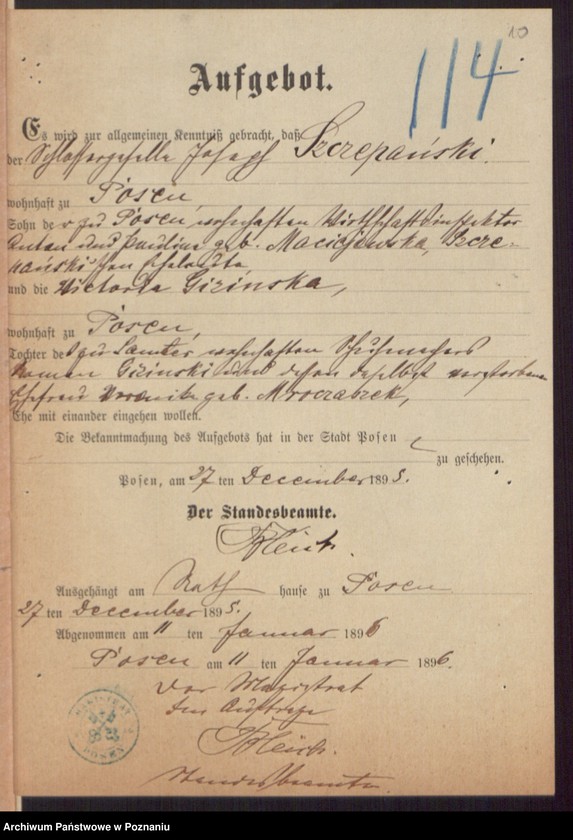 10
114
Aufgebot.
Es wird zur allgemeinen Kenntniß gebracht, daß
der Schlossergeselle Joseph Szczepański.
wohnhaft zu Posen,
Sohn der zu Posen wohnhaften Wirthschaftsinspektor
Anton und Pauline geb. Maciejewska, Szcze-
pańskischen Eheleute
und die Victoria Gizinska,
wohnhaft zu Posen,
Tochter des zu Samter wohnhaften Schuhmachers
Roman Gizinski und dessen daselbst verstorbenen
Ehefrau Veronika geb. Mroczaszek,
Ehe mit einander eingehen wollen.
Die Bekanntmachung des Aufgebots hat in der Stadt Posen
zu geschehen.
Posen, am 27 ten December 1895.
Der Standesbeamte.
Ausgehängt am Rath hause zu Posen
27 ten December 1895.
Abgenommen am 11 ten Januar 1896
Posen am 11 ten Januar 1896.
Der Magistrat
Im Auftrage
Standesbeamter.
MAGISTRAT
POSEN
Archiwum Państwowe w Poznaniu